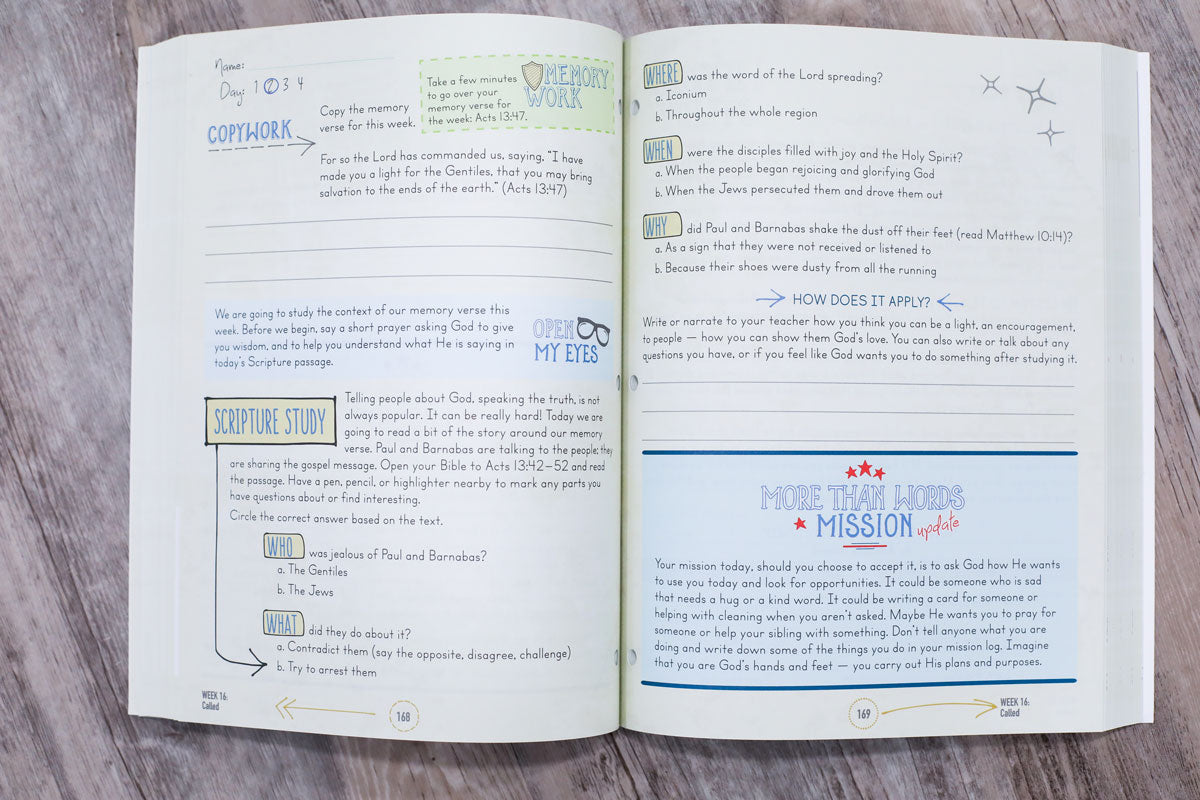 Name:
Day: 1 2 3 4
COPYWORK
Copy the memory
verse for this week.
Take a few minutes
to go over your
memory verse for
the week: Acts 13:47.
MEMORY
WORK
For so the Lord has commanded us, saying, "I have
made you a light for the Gentiles, that you may bring
salvation to the ends of the earth." (Acts 13:47)
We are going to study the context of our memory verse this
week. Before we begin, say a short prayer asking God to give
you wisdom, and to help you understand what He is saying in
today's Scripture passage.
OPEN
MY EYES
SCRIPTURE STUDY
Telling people about God, speaking the truth, is not
always popular. It can be really hard! Today we are
going to read a bit of the story around our memory
verse. Paul and Barnabas are talking to the people; they
are sharing the gospel message. Open your Bible to Acts 13:42–52 and read
the passage. Have a pen, pencil, or highlighter nearby to mark any parts you
have questions about or find interesting.
Circle the correct answer based on the text.
WHO was jealous of Paul and Barnabas?
a. The Gentiles
b. The Jews
WHAT did they do about it?
a. Contradict them (say the opposite, disagree, challenge)
b. Try to arrest them
WEEK 16:
Called
168
WHERE was the word of the Lord spreading?
a. Iconium
b. Throughout the whole region
WHEN were the disciples filled with joy and the Holy Spirit?
a. When the people began rejoicing and glorifying God
b. When the Jews persecuted them and drove them out
WHY did Paul and Barnabas shake the dust off their feet (read Matthew 10:14)?
a. As a sign that they were not received or listened to
b. Because their shoes were dusty from all the running
HOW DOES IT APPLY?
Write or narrate to your teacher how you think you can be a light, an encouragement,
to people — how you can show them God's love. You can also write or talk about any
questions you have, or if you feel like God wants you to do something after studying it.
MORE THAN WORDS
MISSION update
Your mission today, should you choose to accept it, is to ask God how He wants
to use you today and look for opportunities. It could be someone who is sad
that needs a hug or a kind word. It could be writing a card for someone or
helping with cleaning when you aren't asked. Maybe He wants you to pray for
someone or help your sibling with something. Don't tell anyone what you are
doing and write down some of the things you do in your mission log. Imagine
that you are God's hands and feet — you carry out His plans and purposes.
169
WEEK 16:
Called